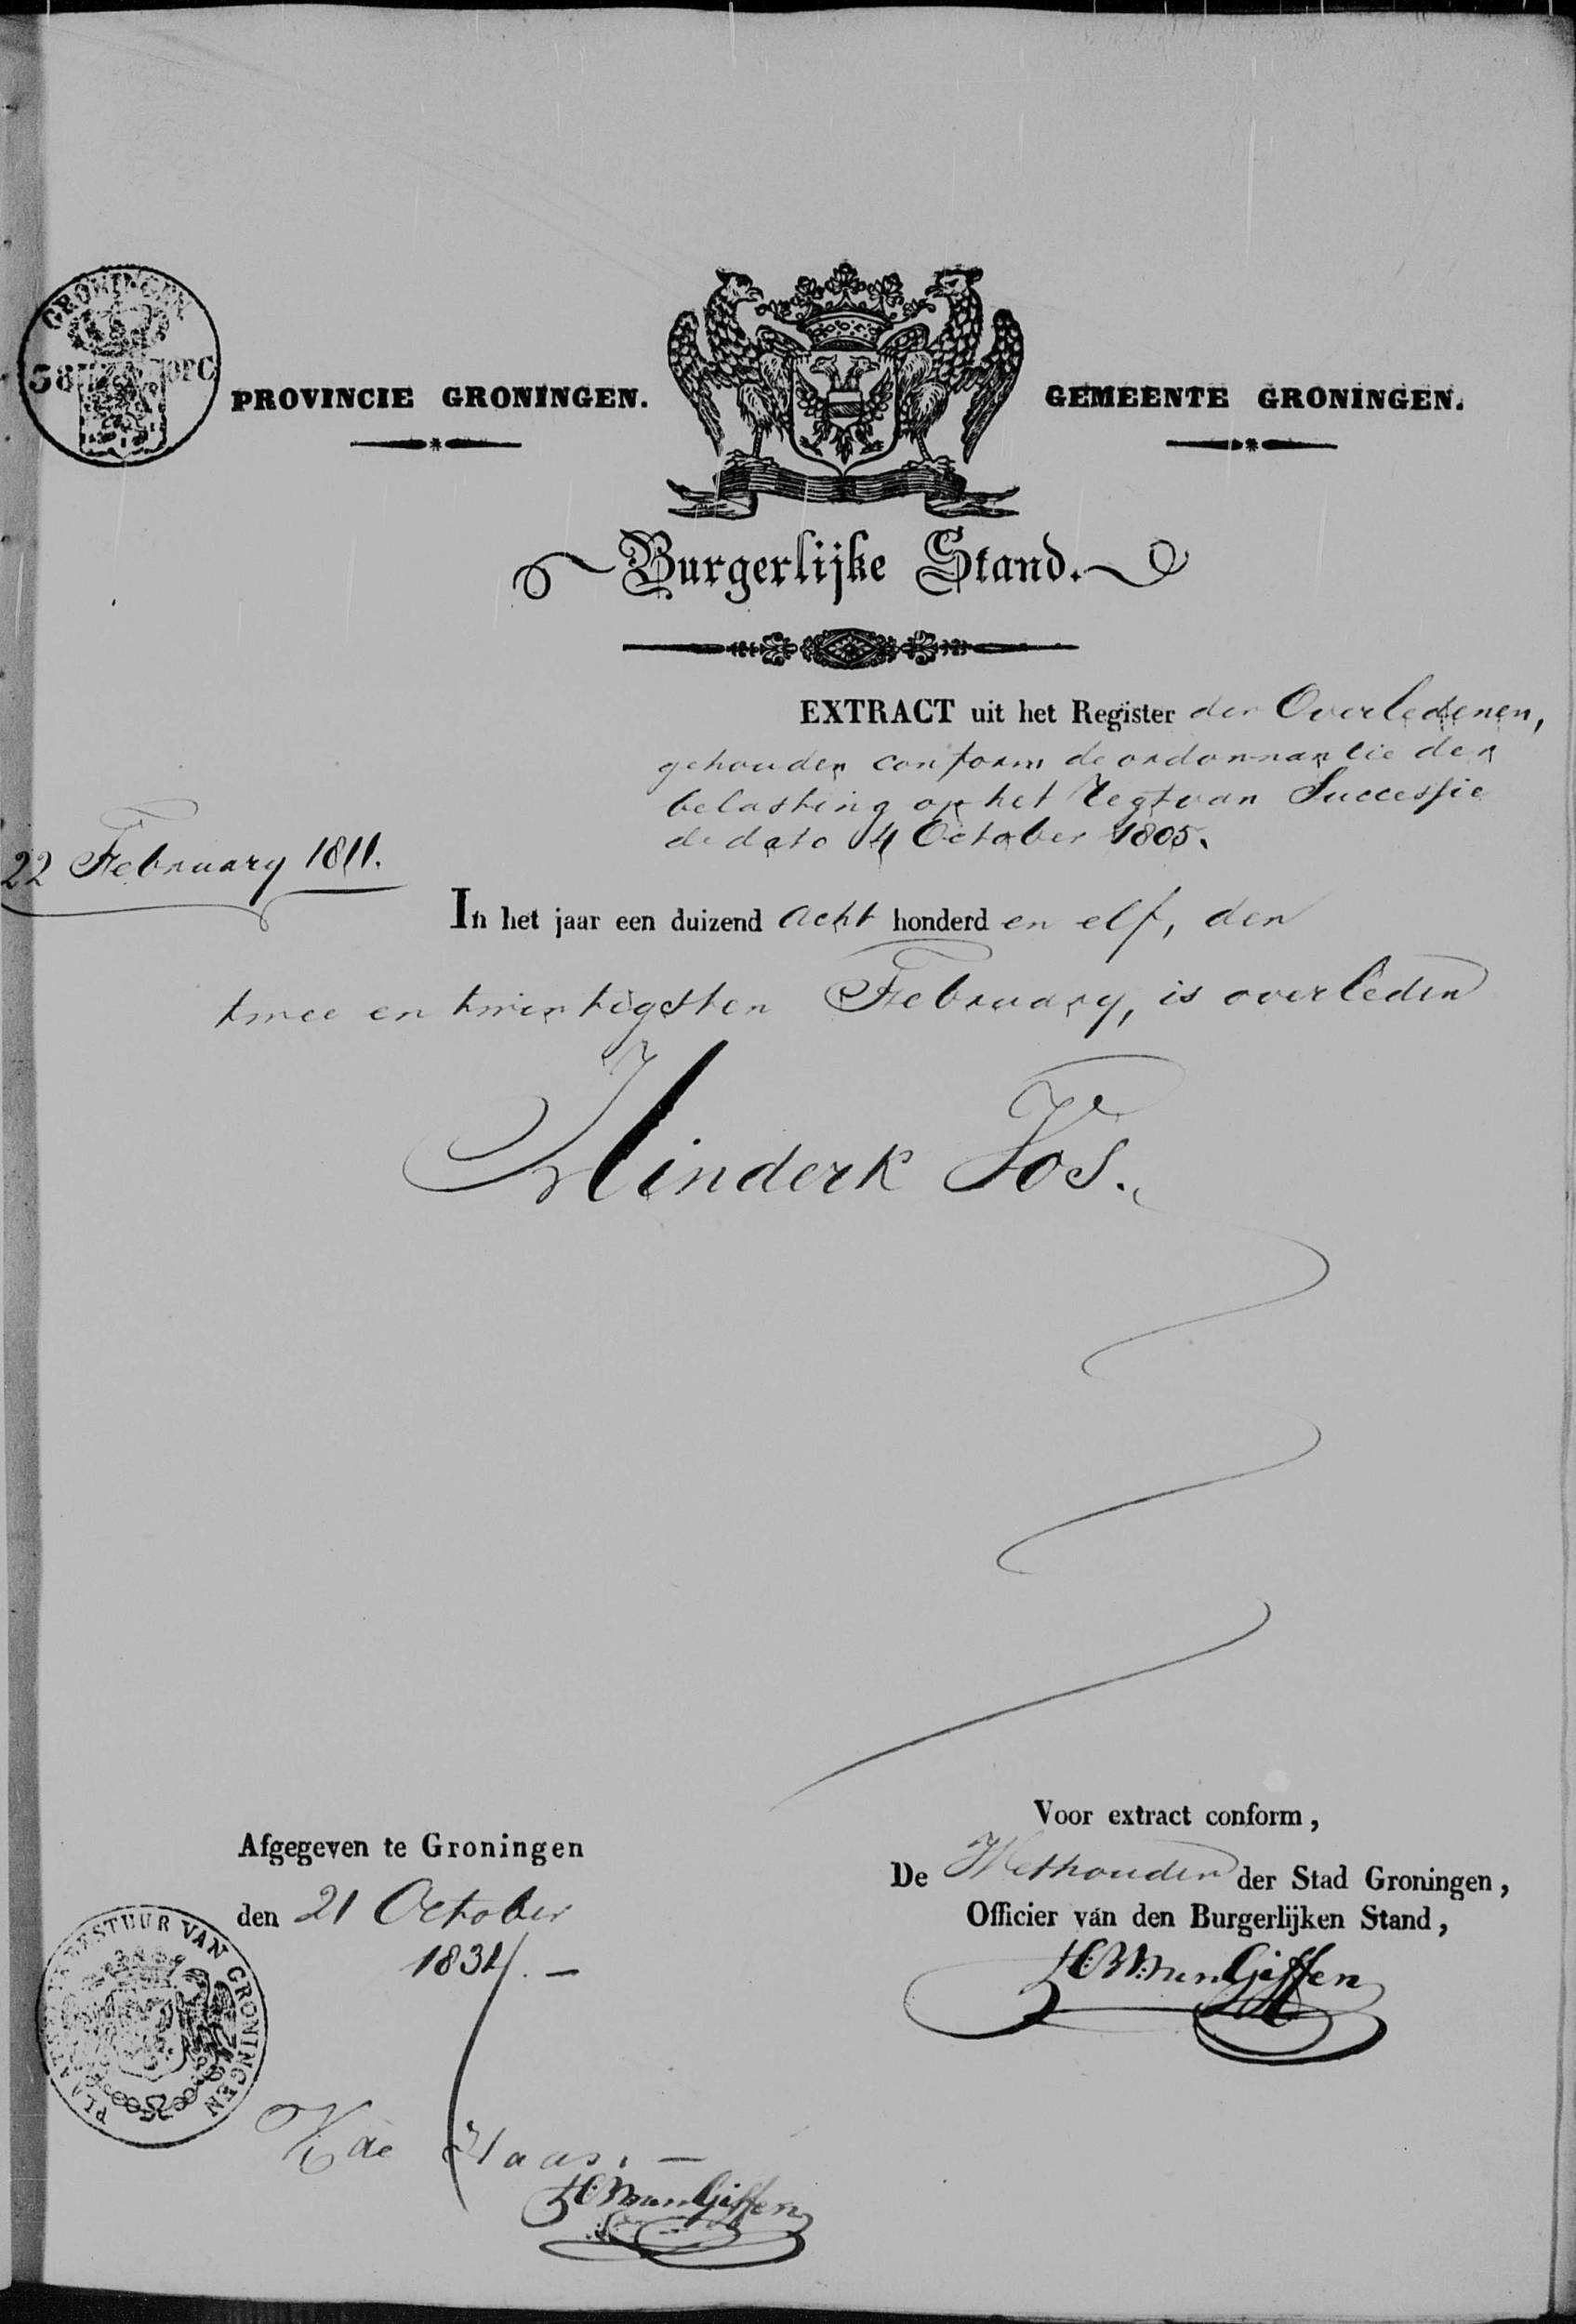 GRONINGEN
38 OPC
PROVINCIE GRONINGEN.
GEMEENTE GRONINGEN.
Burgerlijke Stand.
EXTRACT uit het Register der Overledenen,
gehouden conform de ordonnantie der
belasting op het Regt van Successie
de dato 4 October 1805.
22 February 1811.
In het jaar een duizend acht honderd en elf, den
twee en twintigsten February, is overleden
Hinderk Vos.
Voor extract conform,
Afgegeven te Groningen
De Wethouder der Stad Groningen,
den 21 October
Officier van den Burgerlijken Stand,
1834. –
HWvan Giffen
BESTUUR VAN GRONINGEN
K de Haas. –
HWvan Giffen